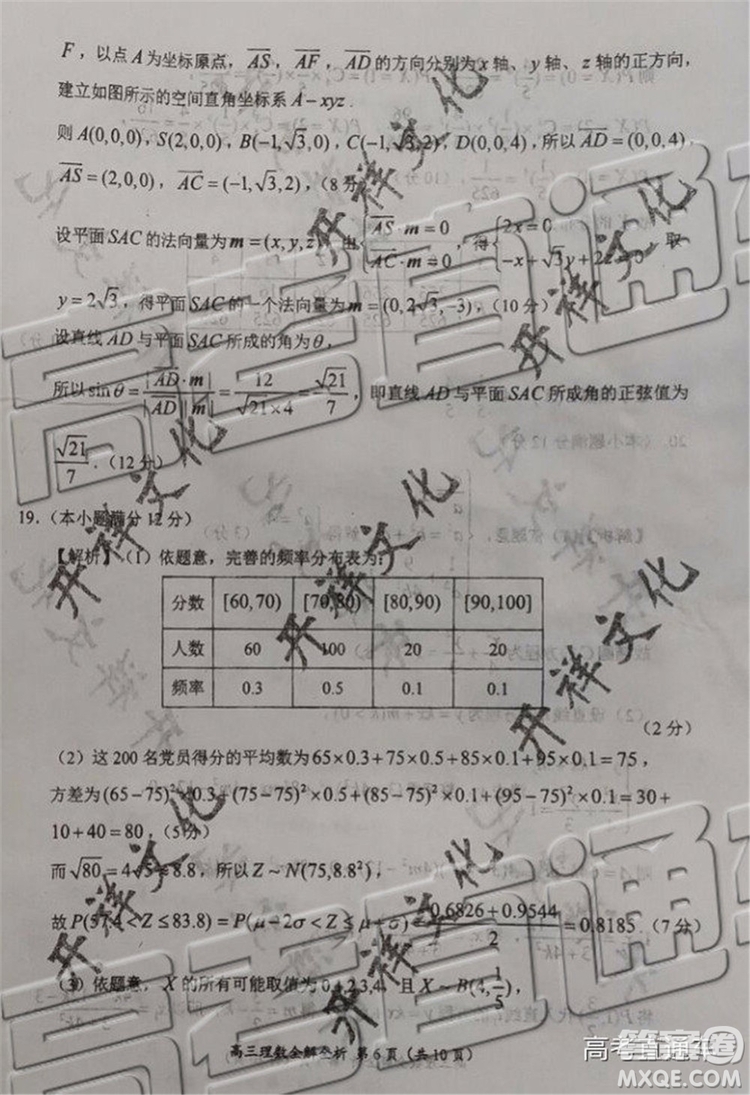 F，以点 A 为坐标原点，AS，AF，AD 的方向分别为 x 轴、y 轴、z 轴的正方向，
建立如图所示的空间直角坐标系 A－xyz．
则 A(0,0,0)，S(2,0,0)，B(−1,√3,0)，C(−1,√3,2)，D(0,0,4)，所以 AD=(0,0,4)，
AS=(2,0,0)，AC=(−1,√3,2)，(8 分
设平面 SAC 的法向量为 m=(x,y,z)，由{AS·m=0 AC·m=0，得{2x=0 −x+√3y+2z=0，取
y=2√3，得平面 SAC 的一个法向量为 m=(0,2√3,−3)，(10 分)
设直线 AD 与平面 SAC 所成的角为 θ，
所以 sinθ=|AD·m|/|AD||m|=12/(√21×4)=√21/7，即直线 AD 与平面 SAC 所成角的正弦值为
√21/7．(12 分)
19．(本小题满分 12 分)
【解析】(1) 依题意，完善的频率分布表为：
分数 [60,70) [70,80) [80,90) [90,100]
人数 60 100 20 20
频率 0.3 0.5 0.1 0.1
(2 分)
(2) 这 200 名党员得分的平均数为 65×0.3+75×0.5+85×0.1+95×0.1=75，
方差为 (65−75)²×0.3+(75−75)²×0.5+(85−75)²×0.1+(95−75)²×0.1=30+
10+40=80，(5分)
而 √80=4√5≈8.8，所以 Z～N(75,8.8²)，
故 P(57.4<Z≤83.8)=P(μ−2σ<Z≤μ+σ)=(0.6826+0.9544)/2=0.8185．(7 分)
(3) 依题意，X 的所有可能取值为 0,1,2,3,4．且 X～B(4,1/5)，
高三理数全解全析 第 6 页（共 10 页）
开祥文化
开祥文化
开祥文化
开祥文化
开祥文化
开祥文化
开祥文化
高考直通车
高考直通车
高考直通车
答案圈
MXQE.COM